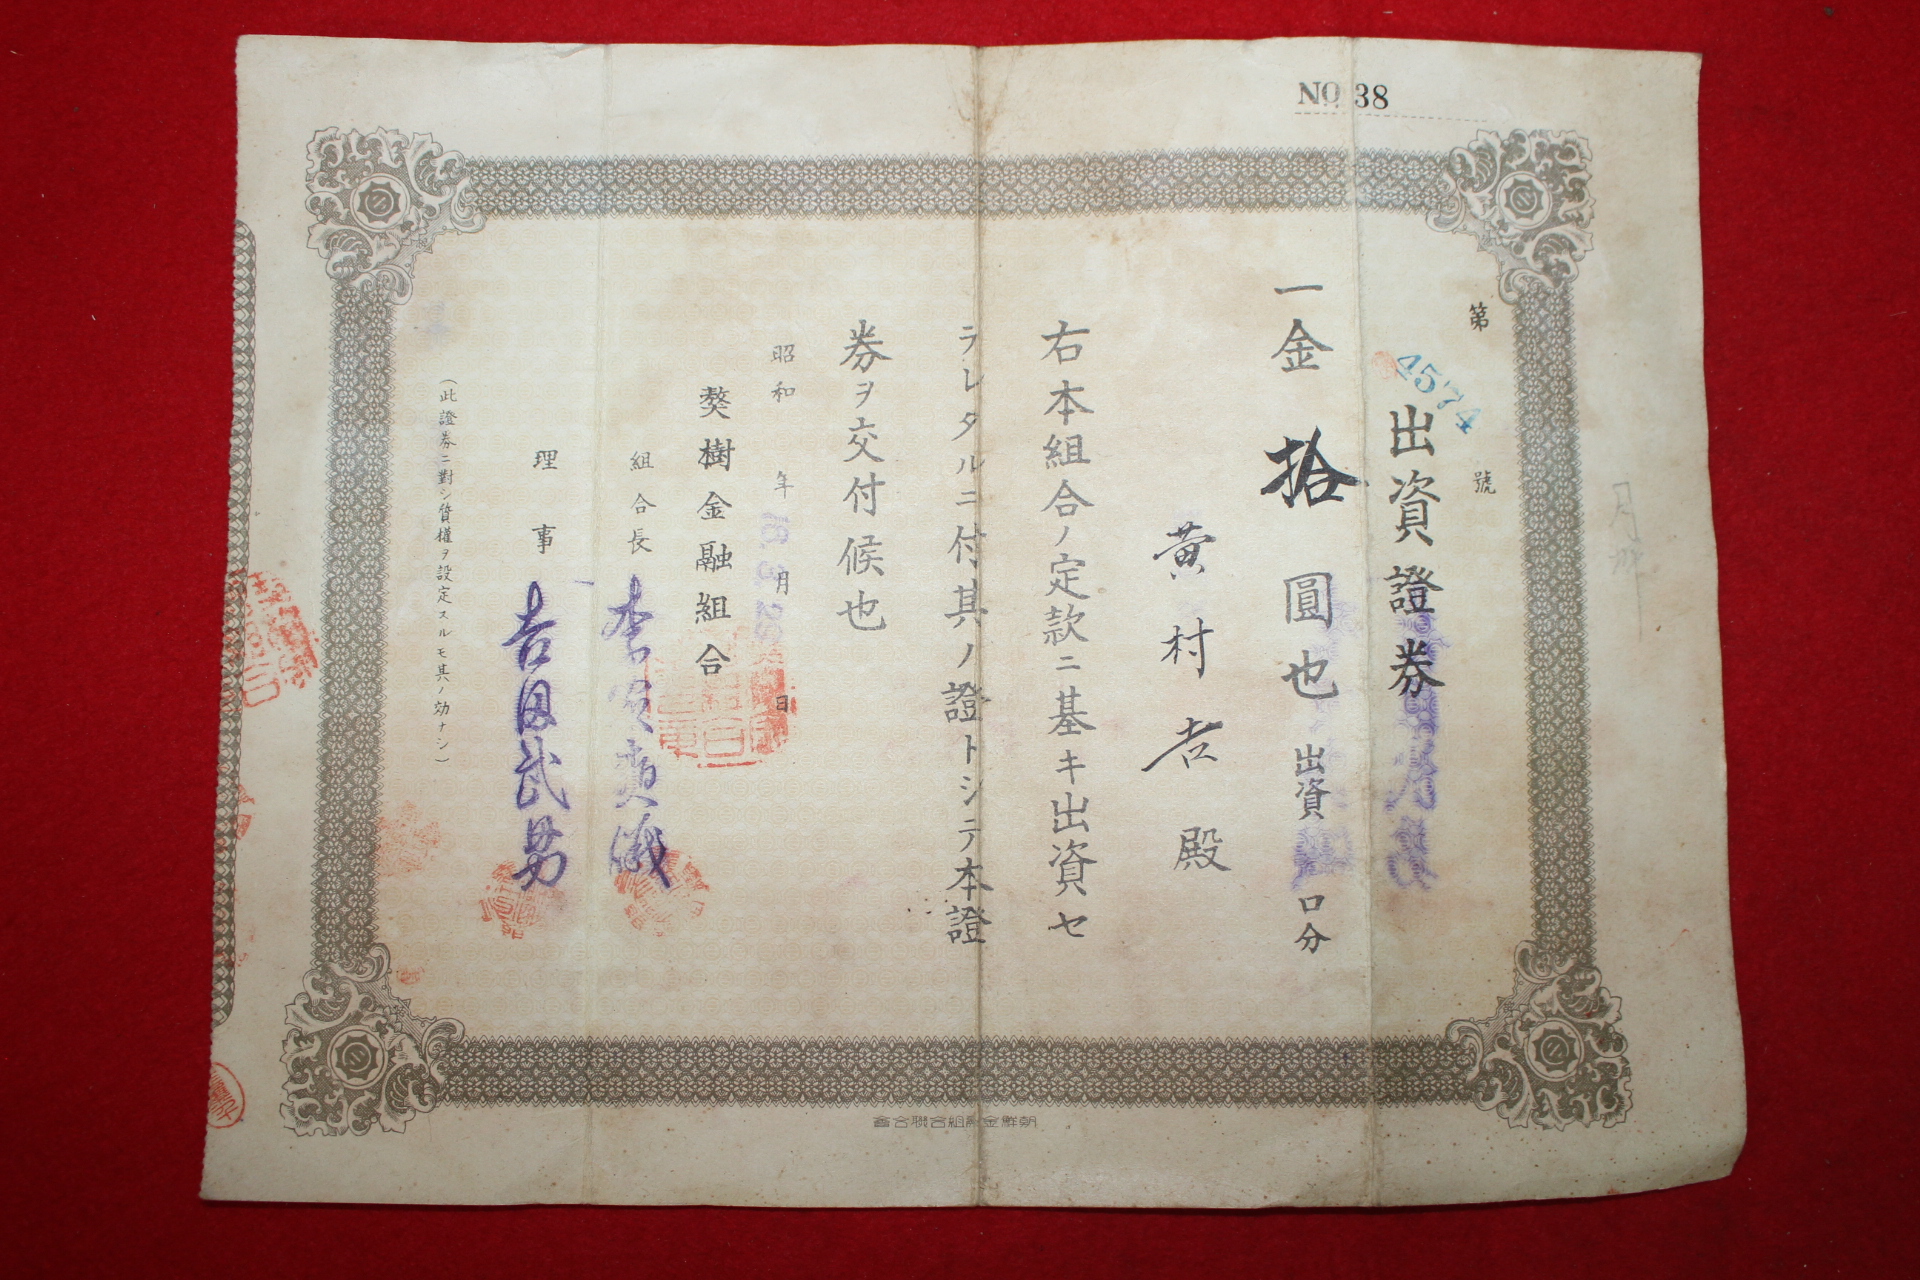 NO 38
第 4574 號
出資證券
一金拾圓也 出資 口分
黄村吉殿
右本組合ノ定款ニ基キ出資セ
ラレタルニ付其ノ證トシテ本證
券ヲ交付候也
昭和 年 月 日
獒樹金融組合
組合長
理事 吉田武男
(此證券ニ對シ質權ヲ設定スルモ其ノ効ナシ)
朝鮮金融組合聯合會